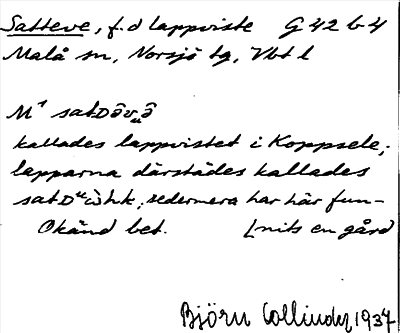 Satteve, f.d lappviste G 42 b 4
Malå sn, Norsjö tg, Vbt l
M¹ satDôv„ô
kallades lappvistet i Koppsele;
lapparna därstädes kallades
satD"ὼhk; sedermera har här fun-
Okänd bet. [nits en gård
Björn Collinder 1937